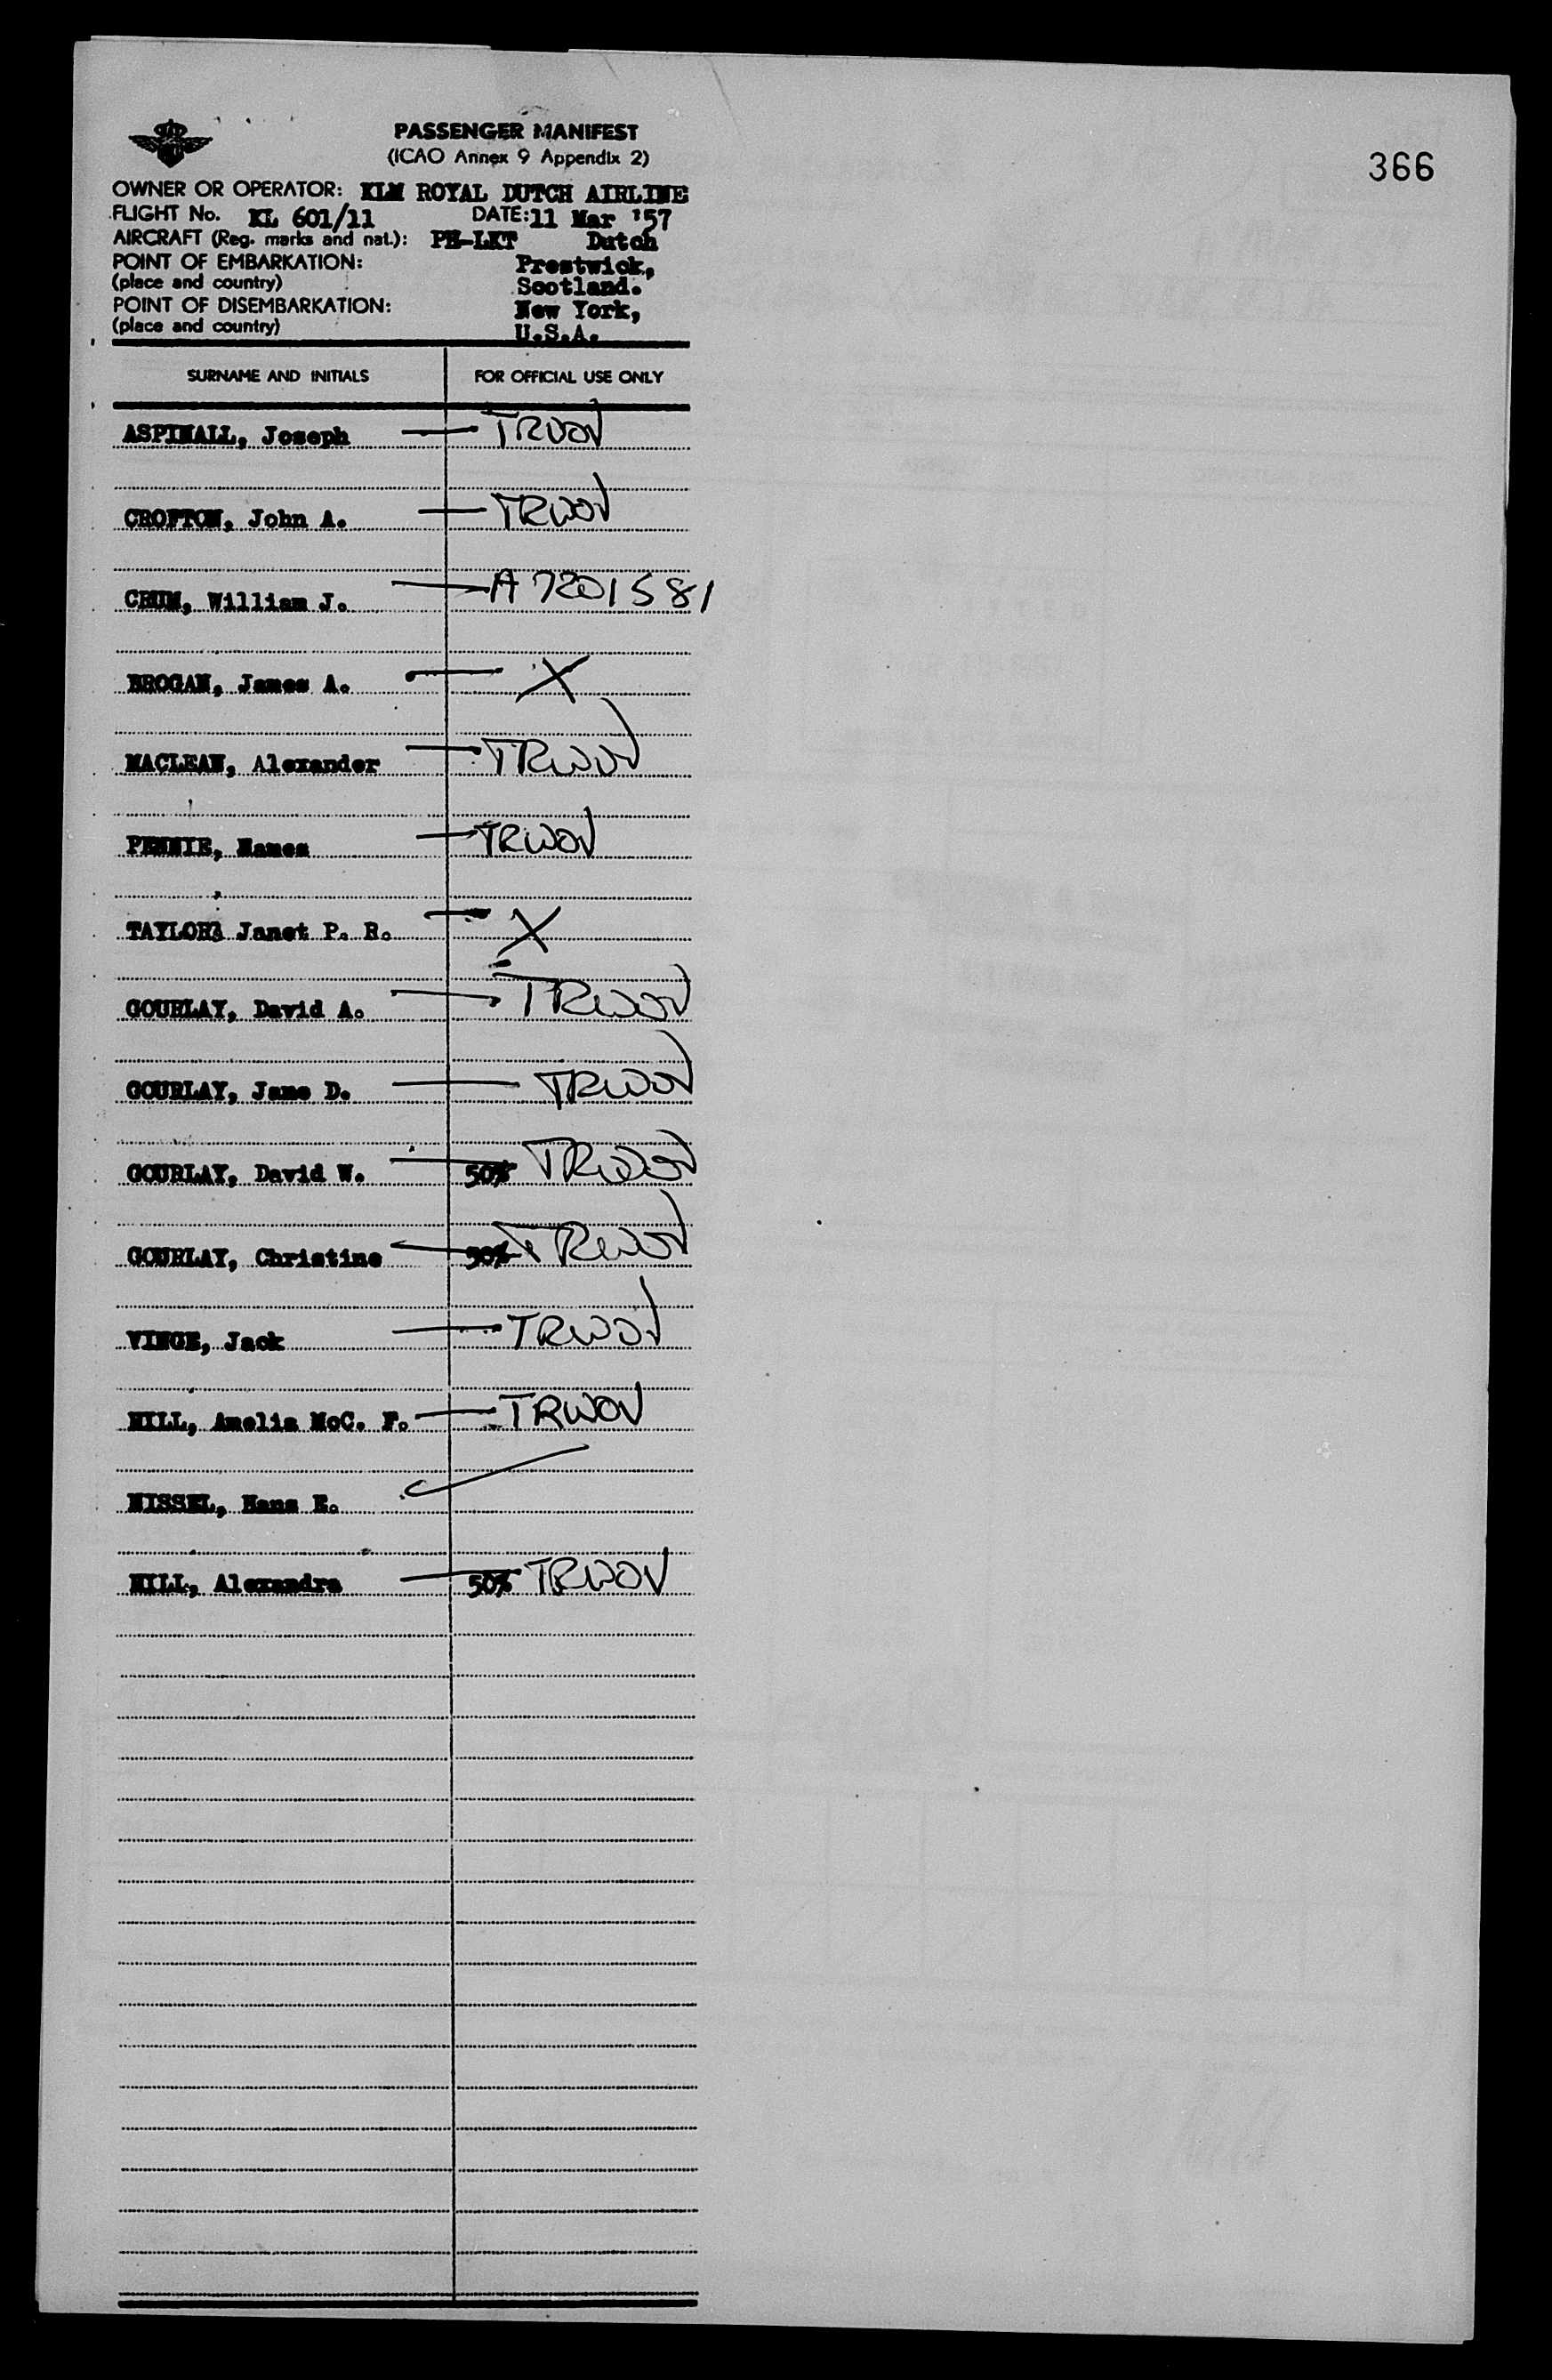 PASSENGER MANIFEST
(ICAO Annex 9 Appendix 2)
366
OWNER OR OPERATOR: KLM ROYAL DUTCH AIRLINE
FLIGHT No. KL 601/11 DATE: 11 Mar '57
AIRCRAFT (Reg. marks and nat.): PH-LKT Dutch
POINT OF EMBARKATION: Prestwick,
(place and country) Scotland.
POINT OF DISEMBARKATION: New York,
(place and country) U.S.A.
SURNAME AND INITIALS FOR OFFICIAL USE ONLY
ASPINALL, Joseph — TRWOV
CROFTON, John A. — TRWOV
CRUM, William J. — A7201581
BROGAN, James A. — X
MACLEAN, Alexander — TRWOV
PENNIE, Names — TRWOV
TAYLOR, Janet P. R. — X
GOURLAY, David A. — TRWOV
GOURLAY, Jane D. — TRWOV
GOURLAY, David W. — 50% TRWOV
GOURLAY, Christine — 50% TRWOV
VINGE, Jack — TRWOV
HILL, Amelia McC. F. — TRWOV
NISSEL, Hans E.
HILL, Alexandra — 50% TRWOV